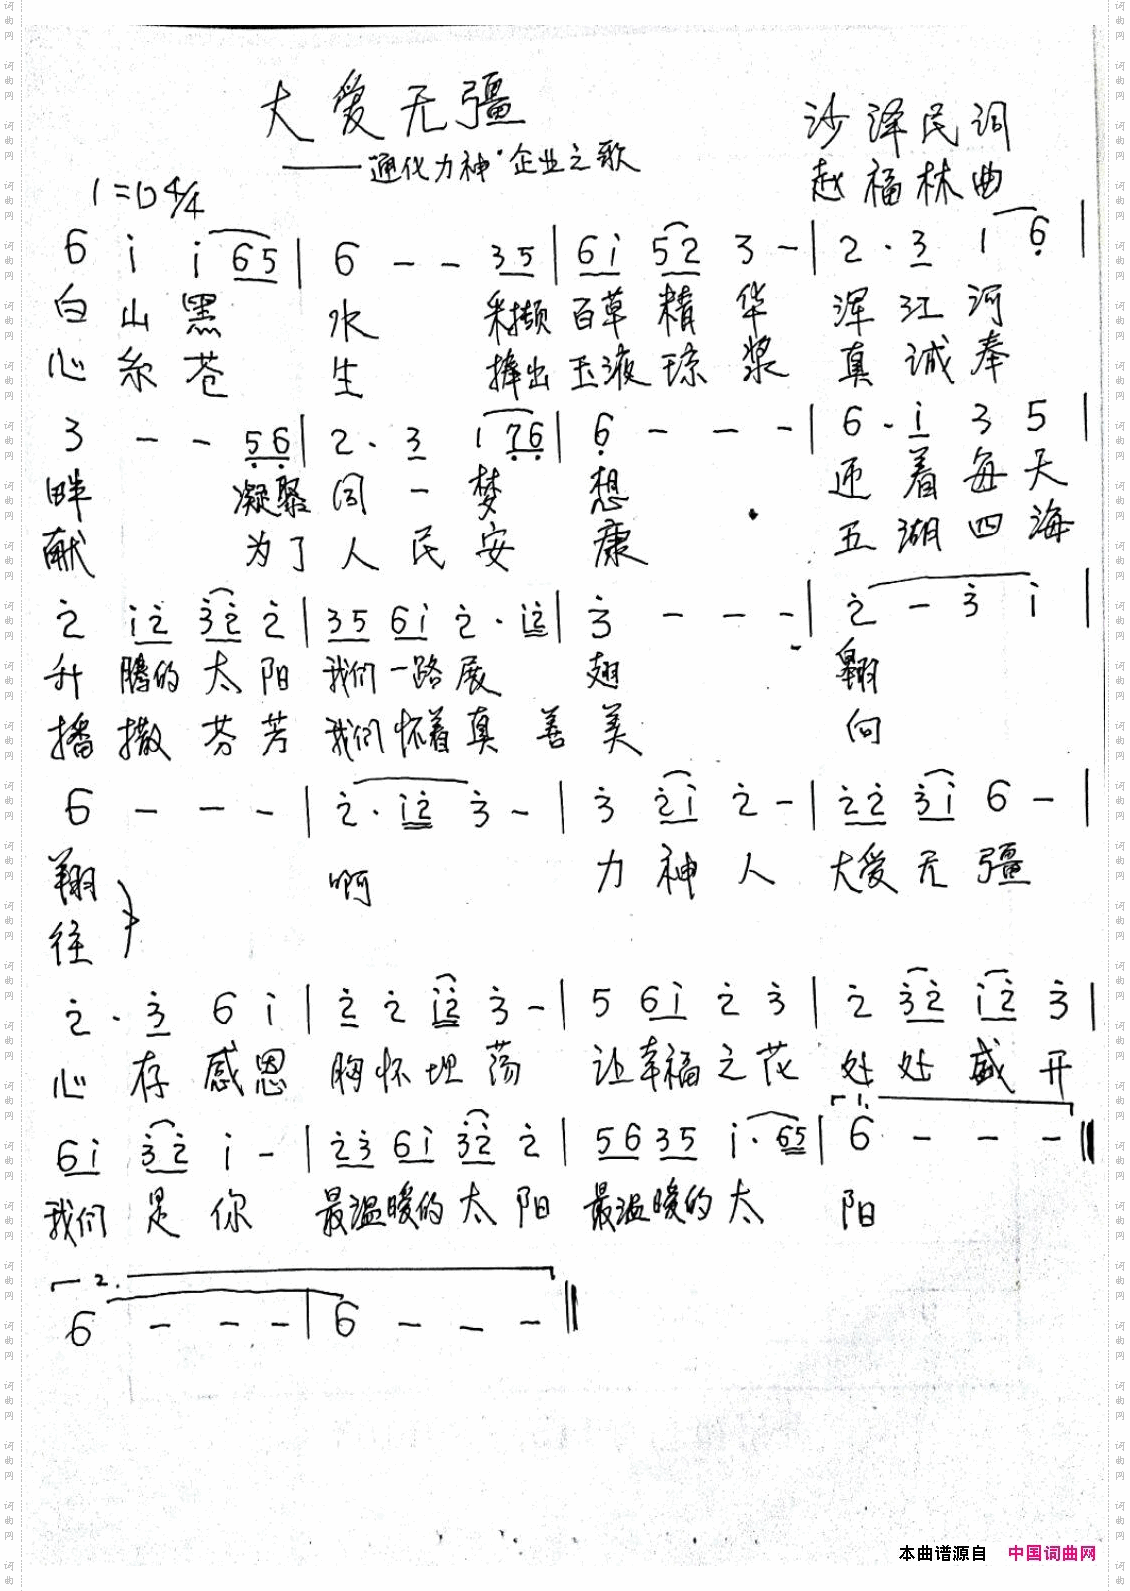 大爱无疆
——"通化力神"企业之歌
沙泽民词
赵福林曲
1=D 4/4
6 i i 65 | 6 - - 35 | 6i 52 3 - | 2· 3 1 6 |
白山黑 水 采撷百草精华 浑江河
心系苍 生 捧出玉液琼浆 真诚奉
3 - - 56 | 2· 3 1 76 | 6 - - - | 6· i 3 5 |
畔 凝聚同一梦 想 迎着每天
献 为了人民安 康 五湖四海
2 i2 32 2 | 35 6i 2· i2 | 3 - - - | 2 - 3 i |
升腾的太阳 我们一路展 翅 翱
播撒芬芳 我们怀着真善美 向
6 - - - | 2· i2 3 - | 3 2i 2 - | 22 3i 6 - |
翔 啊 力神人 大爱无疆
往
2· 3 6 i | 2 2 i2 3 - | 5 6i 2 3 | 2 32 i2 3 |
心存感恩 胸怀坦荡 让幸福之花 处处盛开
1.
6i 32 i - | 23 6i 32 2 | 56 35 i· 65 | 6 - - - ‖
我们是你 最温暖的太阳 最温暖的太 阳
2.
6 - - - | 6 - - - ‖
本曲谱源自 中国词曲网